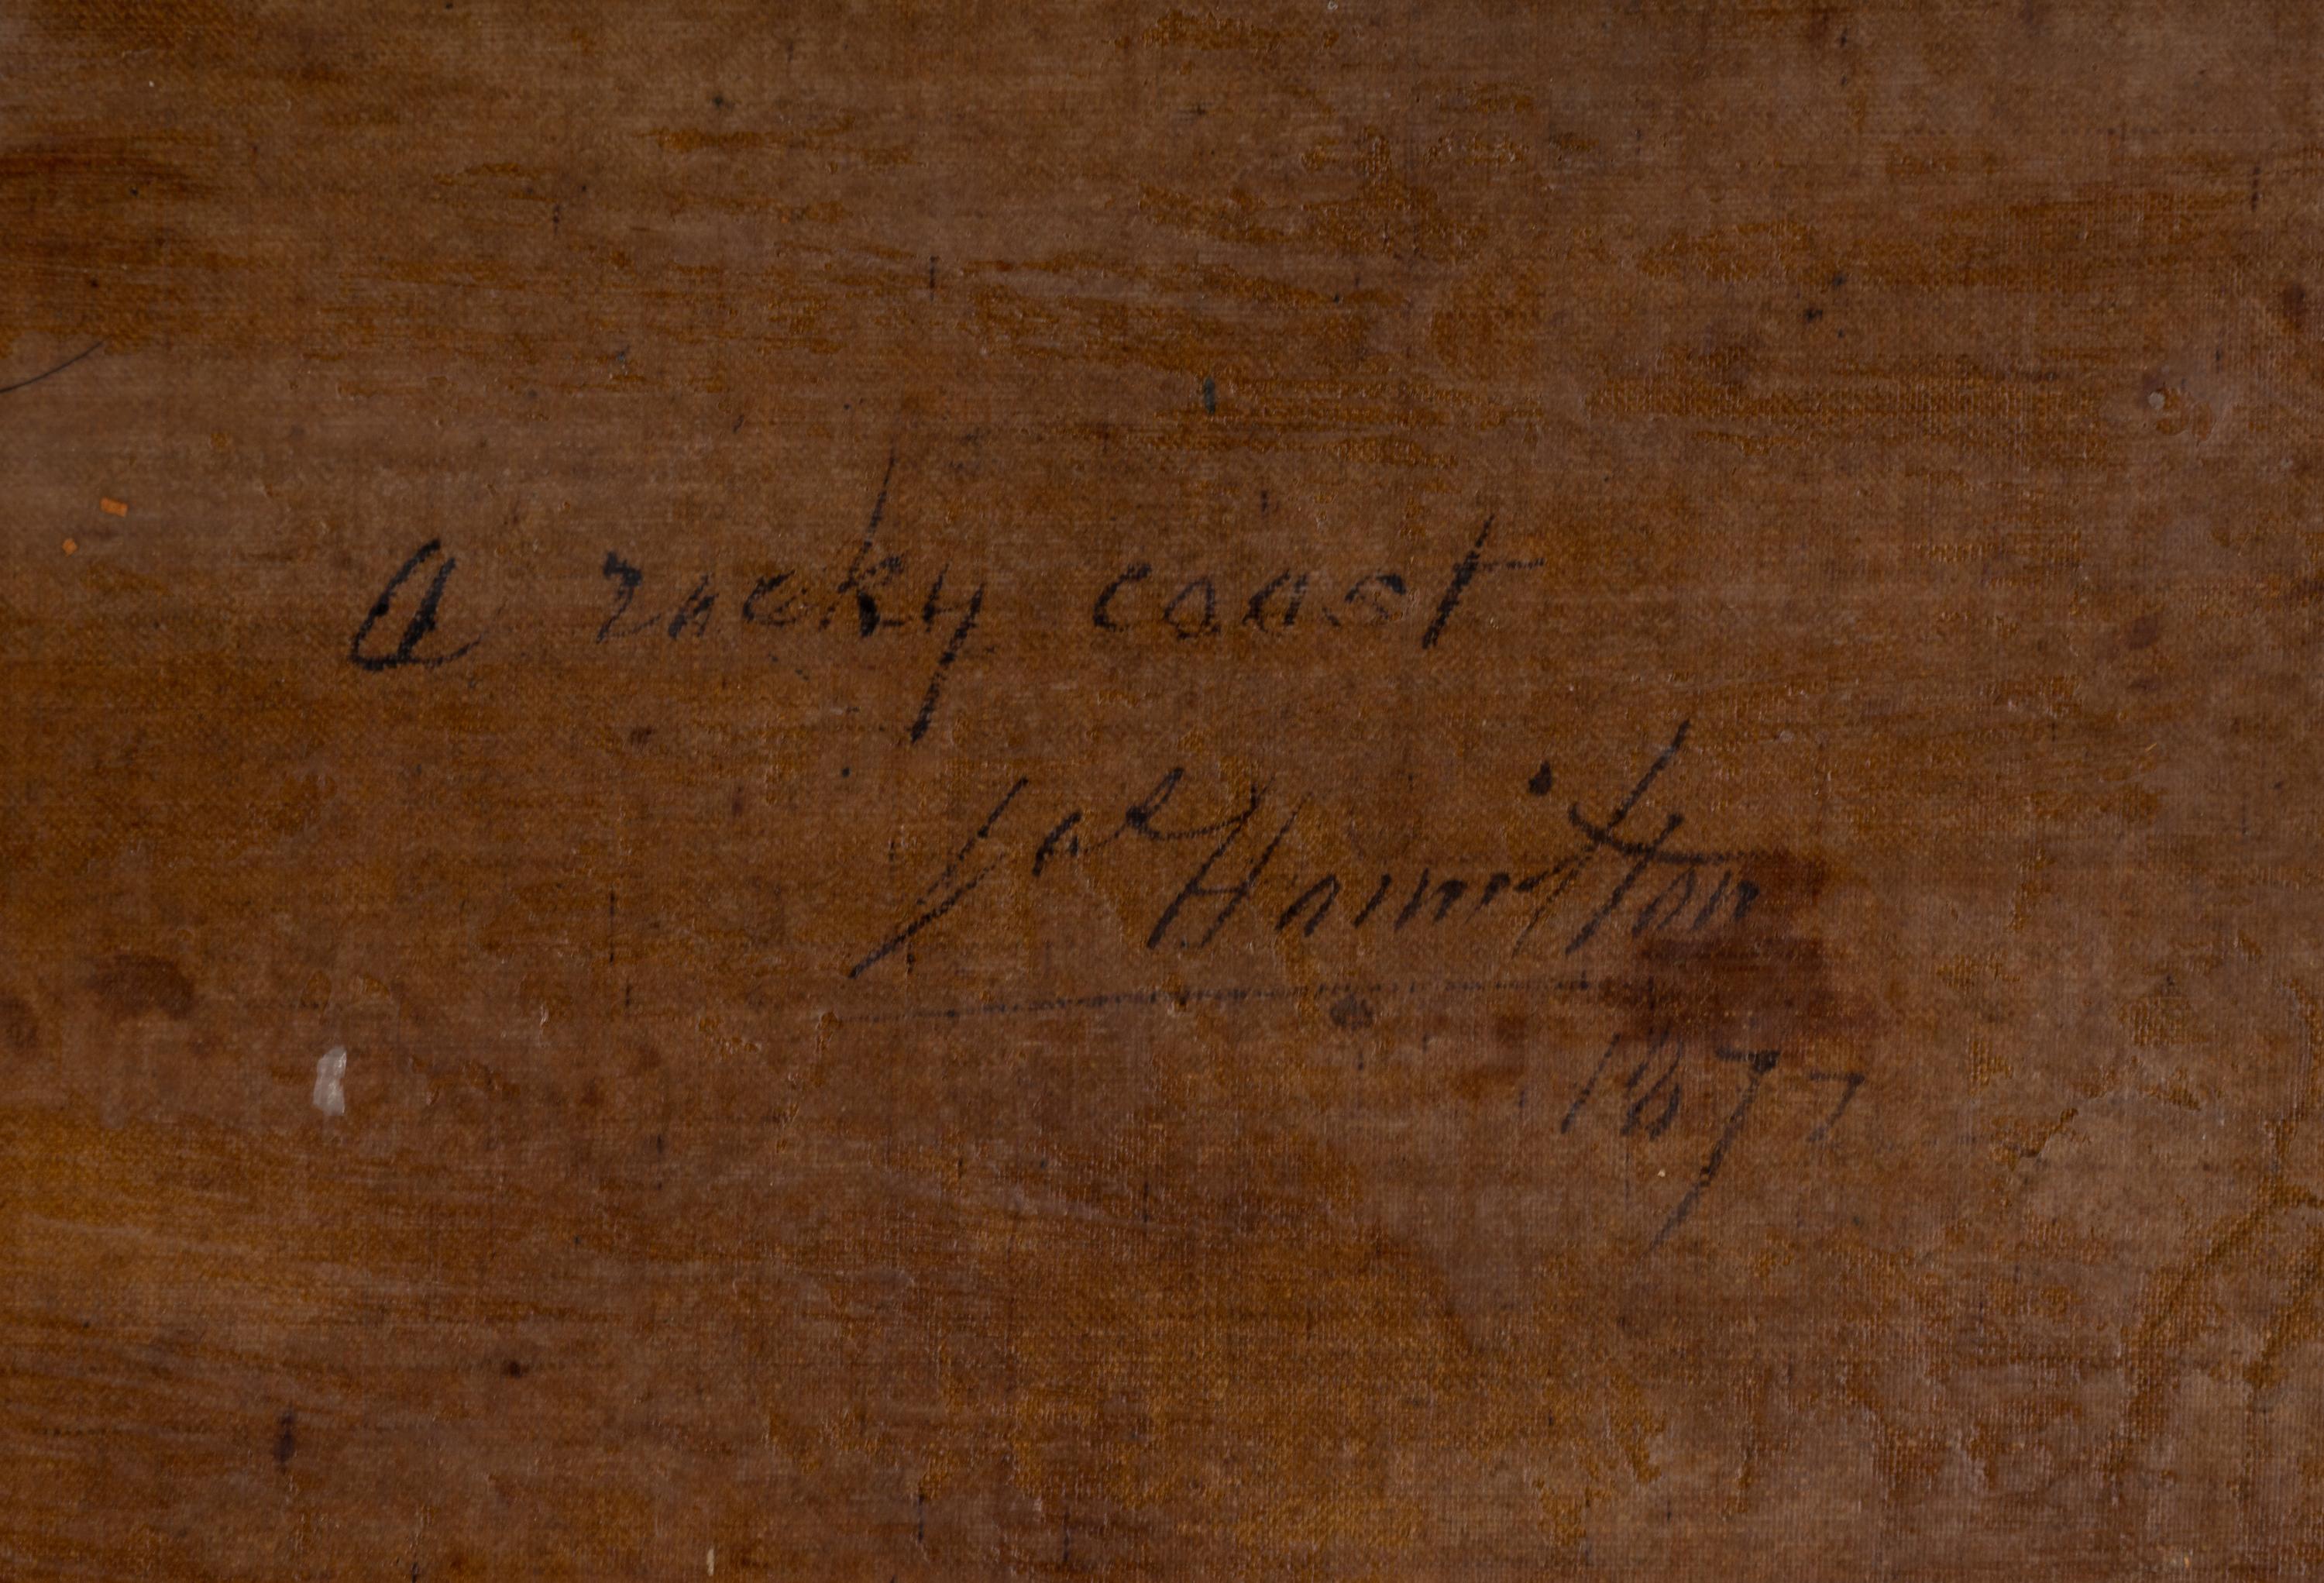 A rocky coast
Jas Hamilton
1877